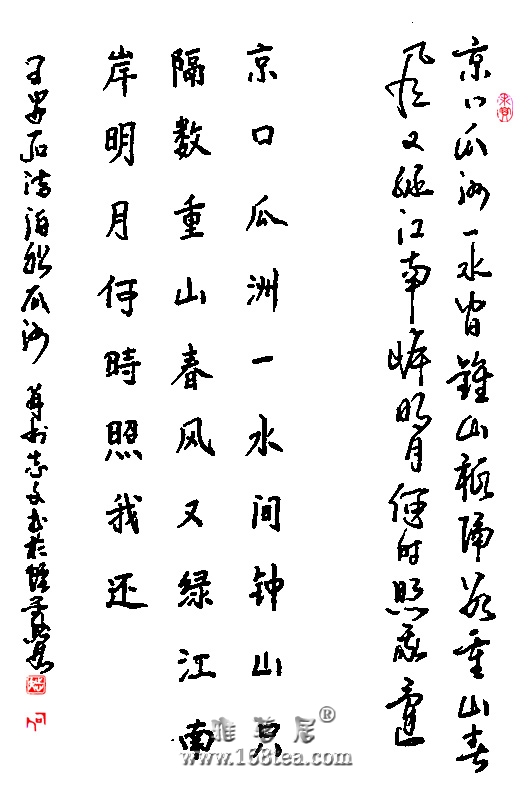 京口瓜洲一水間鍾山祇隔数重山春
风又綠江南岸明月何时照我還
京口瓜洲一水间钟山只
隔数重山春风又绿江南
岸明月何時照我还
王安石诗泊船瓜洲
雅茗居®
www.168tea.com